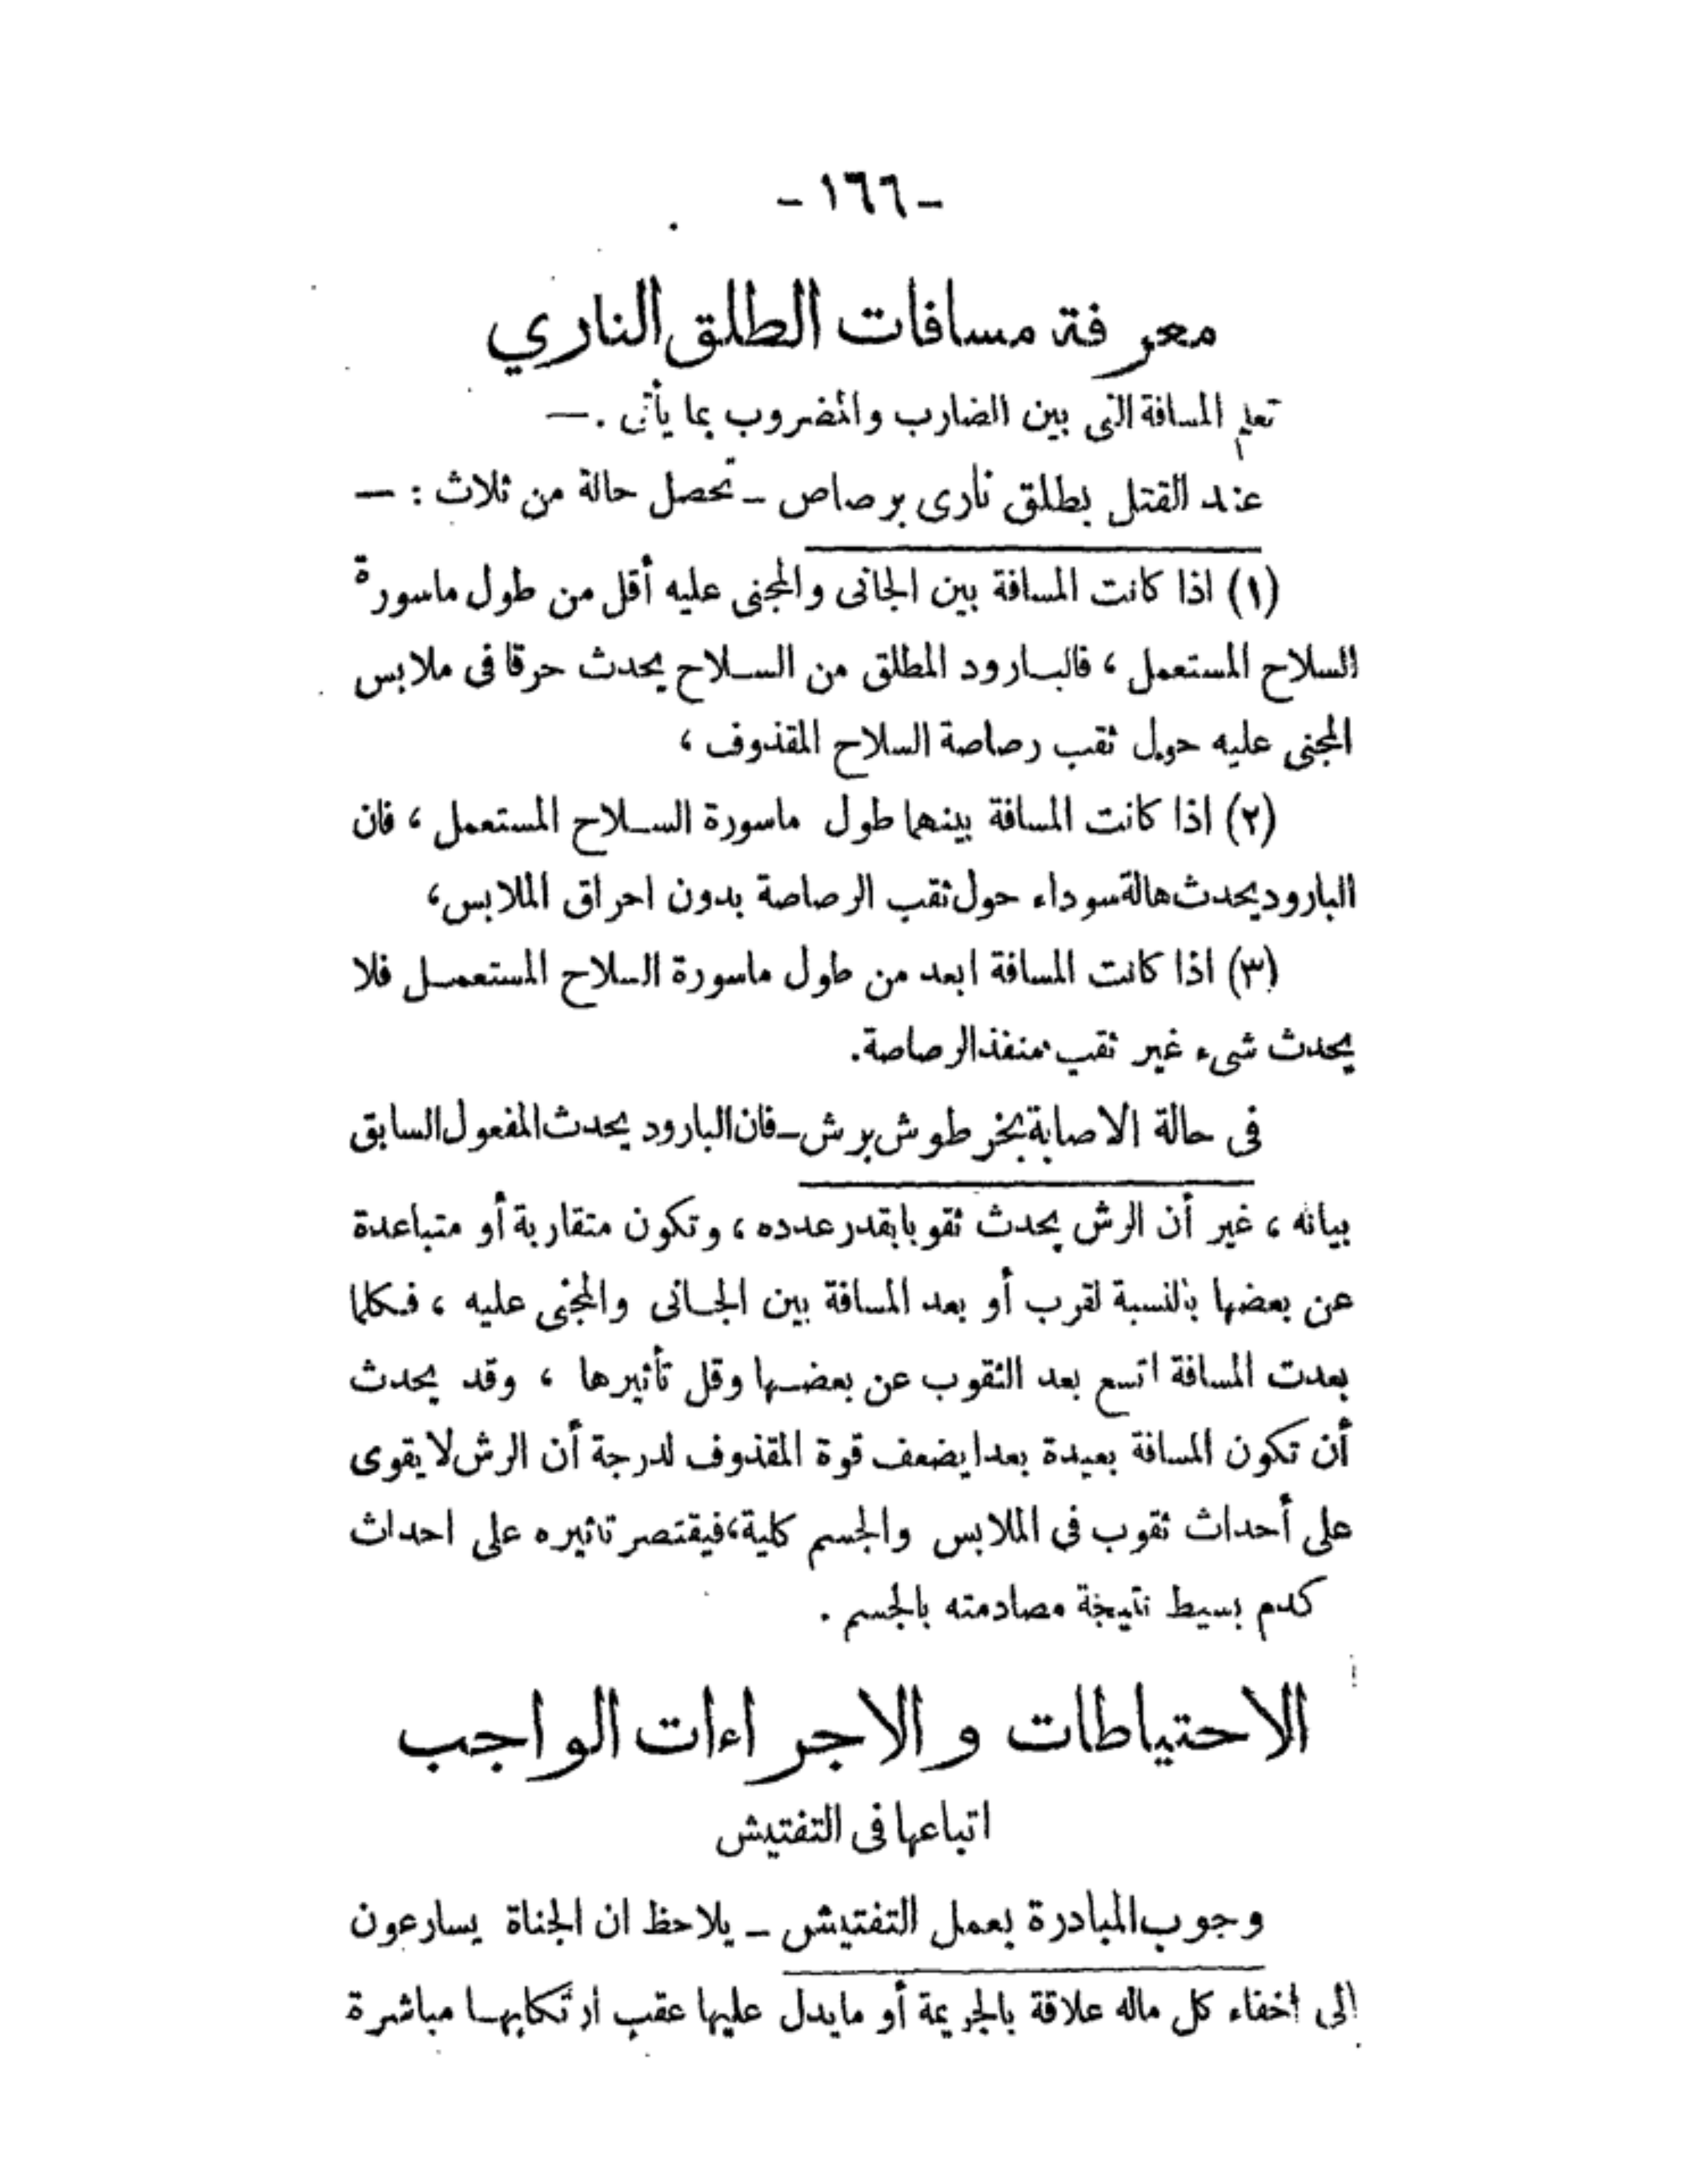 - ١٦٦ -
معرفة مسافات الطلق الناري
تعلم المسافة التى بين الضارب والمضروب بما يأتى . —
عند القتل بطلق نارى برصاص - تحصل حالة من ثلاث : —
(١) اذا كانت المسافة بين الجانى والمجنى عليه أقل من طول ماسورة
السلاح المستعمل ، فالبارود المطلق من السلاح يحدث حرقا فى ملابس
المجنى عليه حول ثقب رصاصة السلاح المقذوف ،
(٢) اذا كانت المسافة بينهما طول ماسورة السلاح المستعمل ، فان
البارود يحدث هالة سوداء حول ثقب الرصاصة بدون احراق الملابس ،
(٣) اذا كانت المسافة ابعد من طول ماسورة السلاح المستعمل فلا
يحدث شىء غير ثقب منفذ الرصاصة.
فى حالة الاصابة بخرطوش برش - فان البارود يحدث المفعول السابق
بيانه ، غير أن الرش يحدث ثقوبا بقدر عدده ، وتكون متقاربة أو متباعدة
عن بعضها بالنسبة لقرب أو بعد المسافة بين الجانى والمجنى عليه ، فكلما
بعدت المسافة اتسع بعد الثقوب عن بعضها وقل تأثيرها ، وقد يحدث
أن تكون المسافة بعيدة بعدا يضعف قوة المقذوف لدرجة أن الرش لا يقوى
على أحداث ثقوب فى الملابس والجسم كلية ، فيقتصر تاثيره على احداث
كدم بسيط نتيجة مصادمته بالجسم .
الاحتياطات والاجراءات الواجب
اتباعها فى التفتيش
وجوب المبادرة بعمل التفتيش - يلاحظ ان الجناة يسارعون
الى اخفاء كل ماله علاقة بالجريمة أو مايدل عليها عقب ارتكابها مباشرة